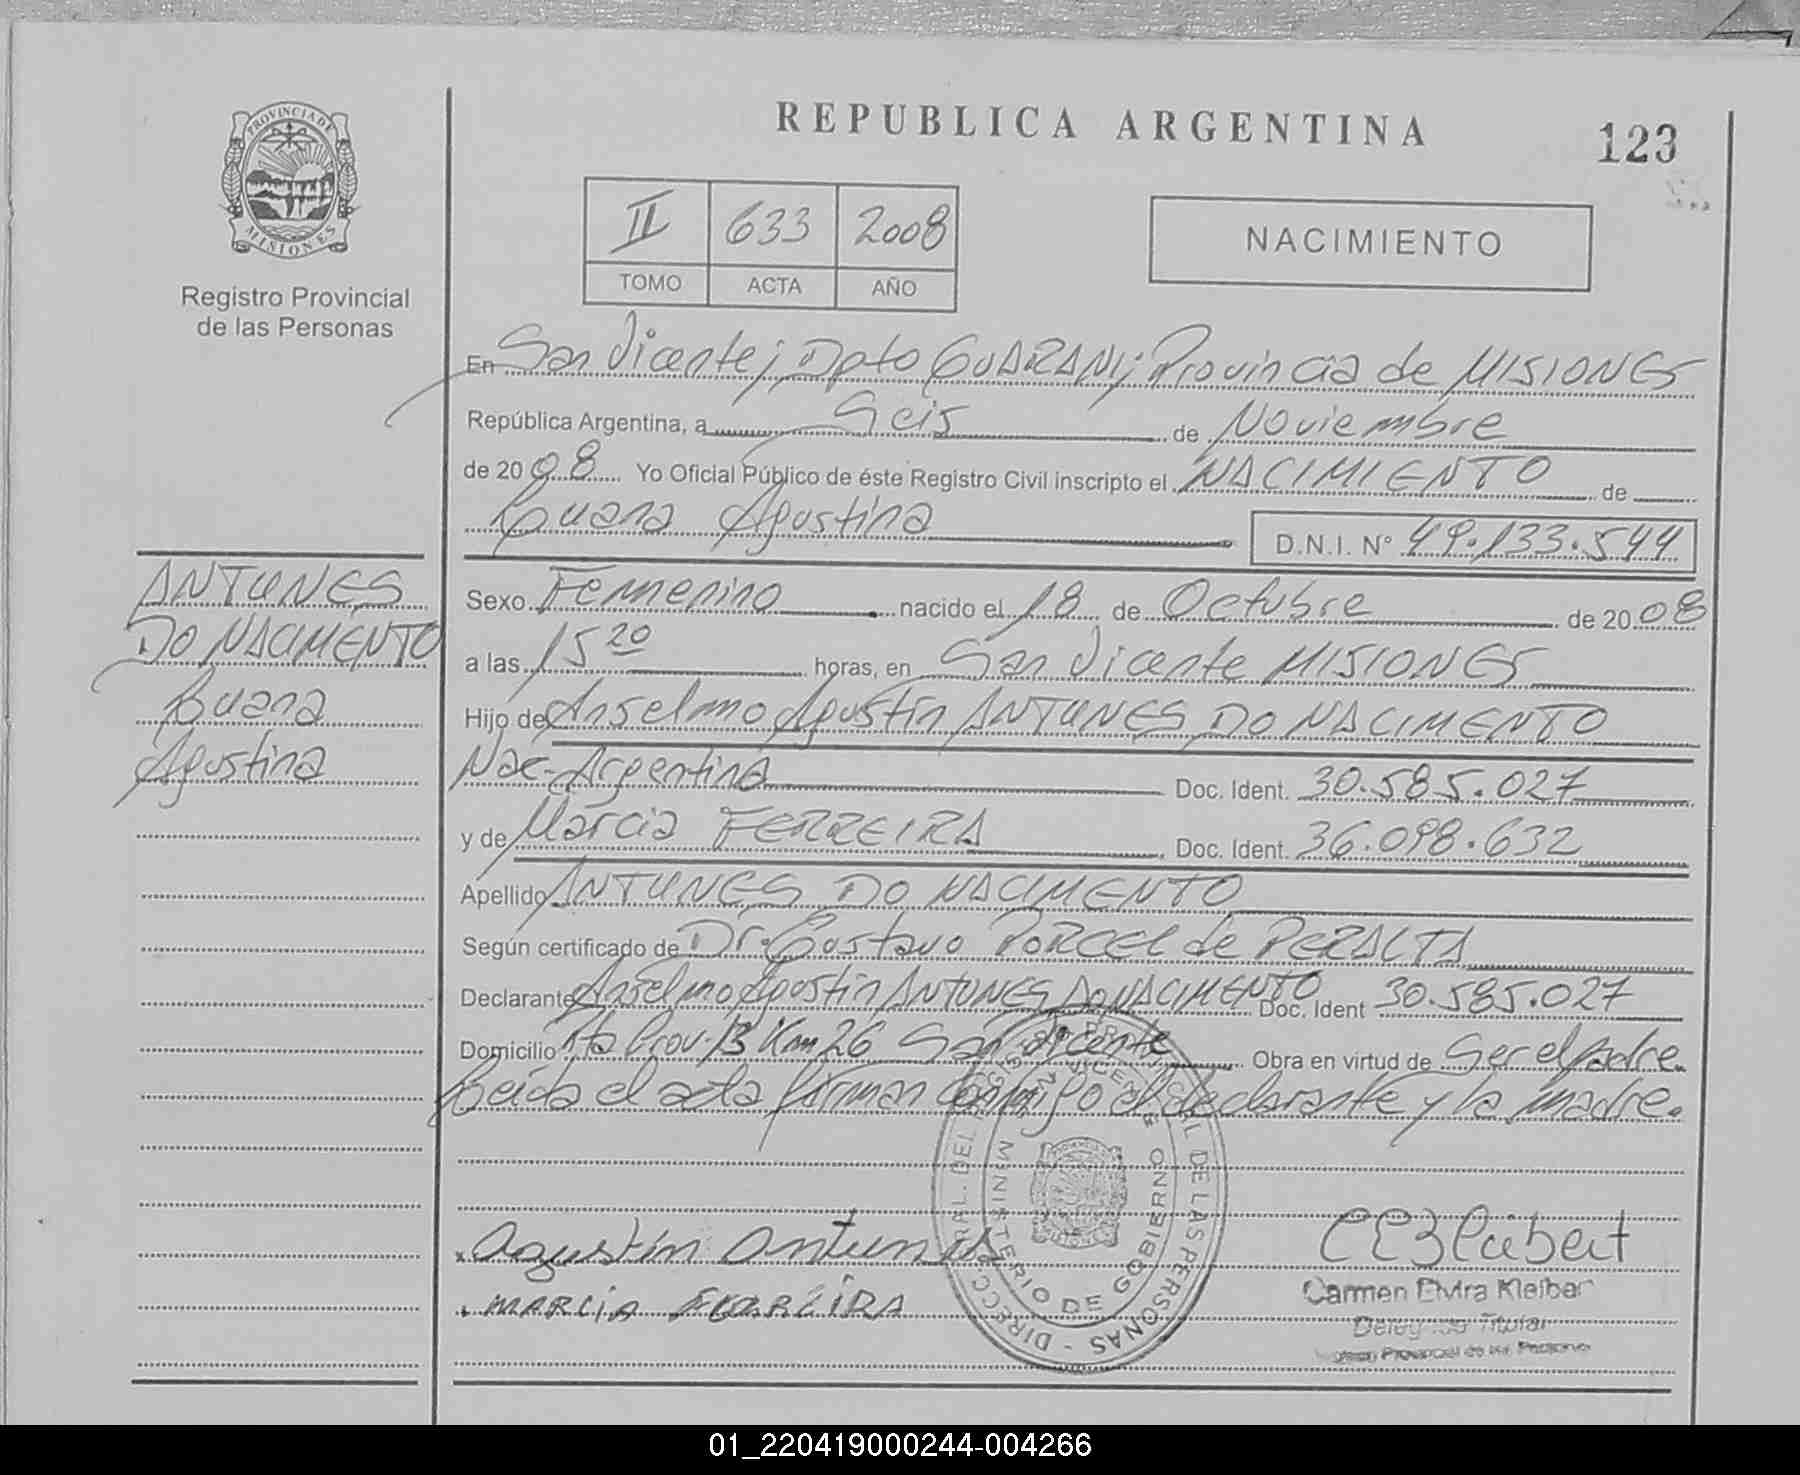 PROVINCIA DE
MISIONES
Registro Provincial
de las Personas
REPUBLICA ARGENTINA
123
II 633 2008
TOMO ACTA AÑO
NACIMIENTO
En San Vicente; Dpto GUARANI; Provincia de MISIONES
República Argentina, a Seis de Noviembre
de 2008 Yo Oficial Público de éste Registro Civil inscripto el NACIMIENTO de
Luana Agustina D.N.I. N° 49.133.544
ANTUNES
DO NACIMENTO
Luana
Agustina
Sexo Femenino nacido el 18 de Octubre de 2008
a las 15 20 horas, en San Vicente MISIONES
Hijo de Anselmo Agustín ANTUNES DO NACIMENTO
Nac. Argentina Doc. Ident. 30.585.027
y de Marcia FERREIRA Doc. Ident. 36.098.632
Apellido ANTUNES DO NACIMENTO
Según certificado de Dr. Gustavo PORCEL de PERALTA
Declarante Anselmo Agustín ANTUNES DO NACIMENTO Doc. Ident 30.585.027
Domicilio Rta Prov. 13 Km 26 San Vicente Obra en virtud de Ser el padre.
Leída el acta firman conmigo el declarante y la madre.
Agustín Antunes
MARCIA FERREIRA
Carmen Elvira Kleiber
Titular
Provincial de las Personas
MINISTERIO DE GOBIERNO
01_220419000244-004266